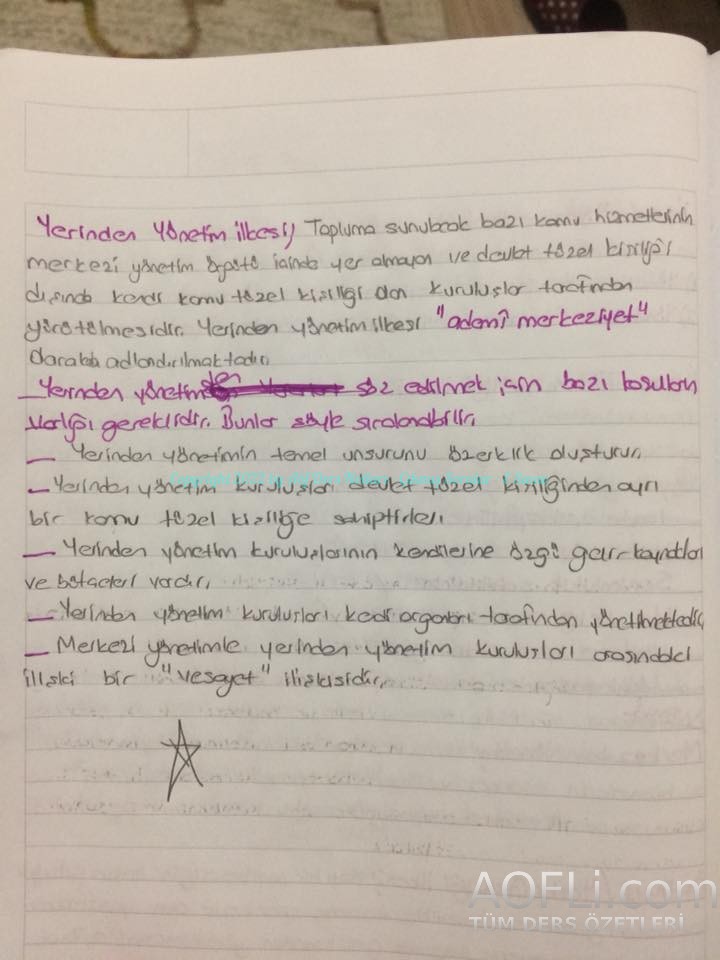 Yerinden Yönetim ilkesi) Topluma sunulacak bazı kamu hizmetlerinin
merkezi yönetim örgütü içinde yer almayan ve devlet tüzel kişiliği
dışında kendi kamu tüzel kişiliği olan kuruluşlar tarafından
yürütülmesidir. Yerinden yönetim ilkesi "ademî merkeziyet"
olarakta adlandırılmaktadır.
Yerinden yönetimden söz edilmek için bazı koşulların
varlığı gereklidir. Bunlar şöyle sıralanabilir.
— Yerinden yönetimin temel unsurunu özerklik oluşturur.
— Yerinden yönetim kuruluşları devlet tüzel kişiliğinden ayrı
bir kamu tüzel kişiliğe sahiptirler.
— Yerinden yönetim kuruluşlarının kendilerine özgü gelir kaynakları
ve bütçeleri vardır.
— Yerinden yönetim kuruluşları kedi organları tarafından yönetilmektedir.
— Merkezi yönetimle yerinden yönetim kuruluşları arasındaki
ilişki bir "vesayet" ilişkisidir.
AOFLi.com
TÜM DERS ÖZETLERİ